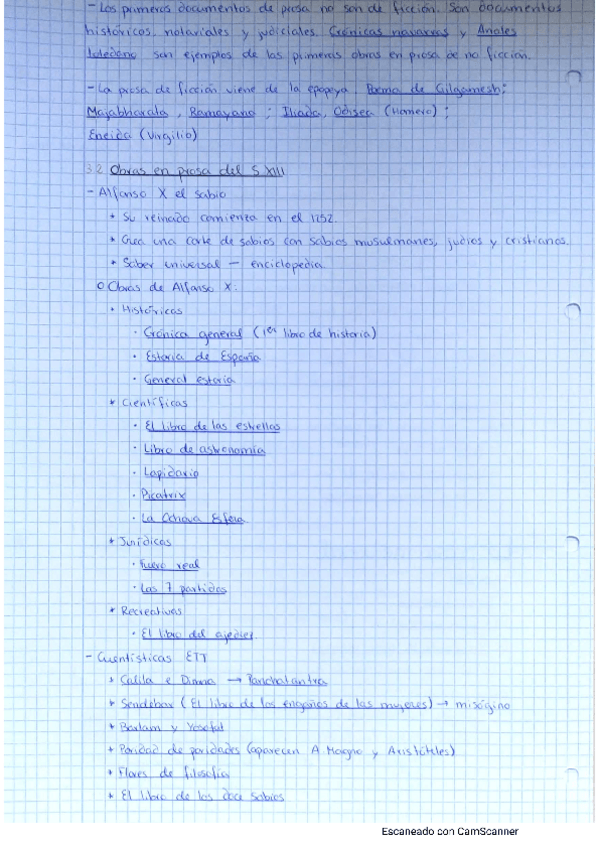 - Los primeros documentos de prosa no son de ficción. Son documentos
históricos, notariales y judiciales. Crónicas navarras y Anales
toledano son ejemplos de las primeras obras en prosa de no ficción.
- La prosa de ficción viene de la epopeya. Poema de Gilgamesh;
Majabharata, Ramayana; Iliada, Odisea (Homero);
Eneida (Virgilio)
3.2 Obras en prosa del S XIII
- Alfonso X el sabio
* Su reinado comienza en el 1252.
* Crea una corte de sabios con sabios musulmanes, judios y cristianos.
* Saber universal — enciclopedia
O Obras de Alfonso X.
* Históricas
· Crónica general (1er libro de historia)
· Estoria de España
· General estoria
* Científicas
· El libro de las estrellas
· Libro de astronomía
· Lapidario
· Picatrix
· La Ochava Esfera
* Jurídicas
· Fuero real
· Las 7 partidas
* Recreativas
· El libro del ajedrez
- Cuentísticas ETT
* Calila e Dimna → Panchatantra
* Sendebar (El libro de los engaños de las mujeres) → misógino
* Barlam y Yosafat
* Poridad de poridades (aparecen A Magno y Aristóteles)
* Flores de filosofía
* El libro de los doce sabios
Escaneado con CamScanner